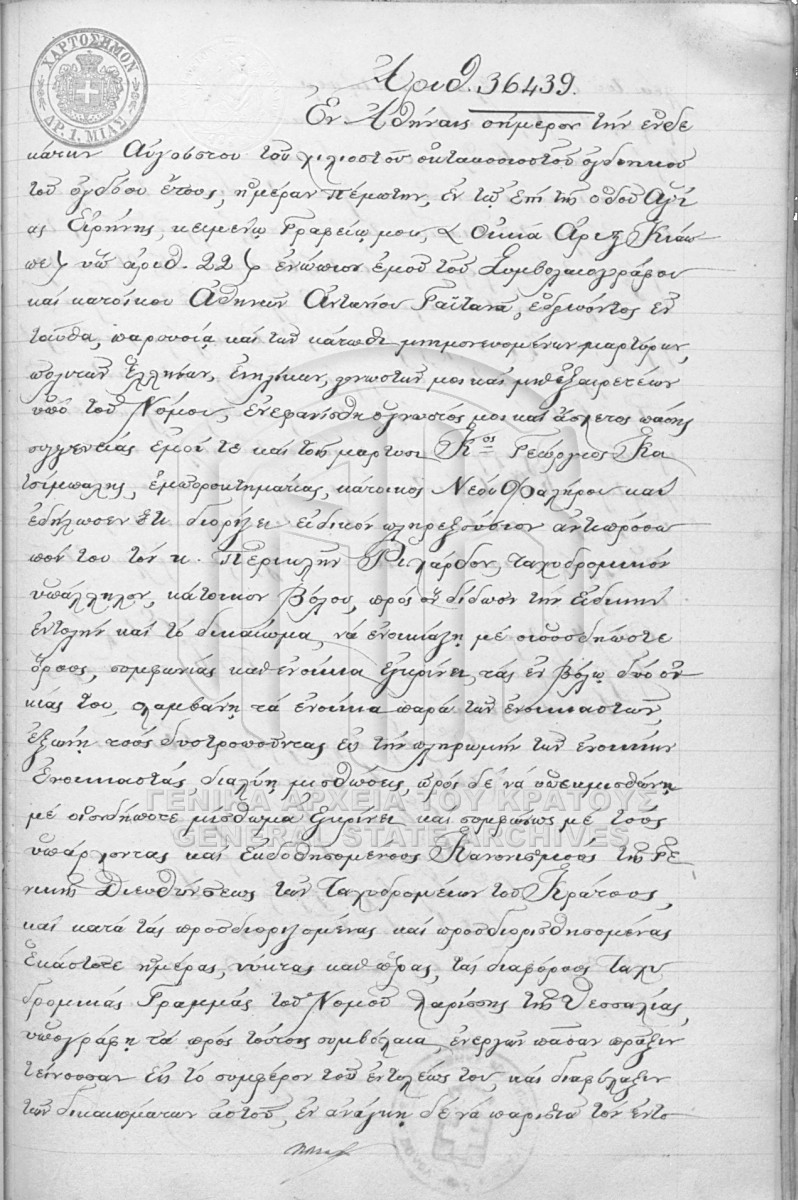 ΧΑΡΤΟΣΗΜΟΝ
ΔΡ. 1. ΜΙΑΣ
Αριθ. 36439.
Εν Αθήναις σήμερον την ενδε
κάτην Αυγούστου του χιλιοστού οκτακοσιοστού ογδοηκοσ
του ογδόου έτους, ημέραν Πέμπτην, εν τω επί της οδού Αγί
ας Ειρήνης, κειμένω Γραφείω μου, Οικία Αριστ Κιάπ
πε) υπ' αριθ. 22) ενώπιον εμού του Συμβολαιογράφου
και κατοίκου Αθηνών Αντωνίου Γαϊτάνα, εδρεύοντος εν
ταύθα, παρουσία και των κάτωθι μνημονευομένων μαρτύρων,
πολιτών Ελλήνων, ενηλίκων, γνωστών μοι και μη εξαιρετέων
υπό του Νόμου, ενεφανίσθη ο γνωστός μοι και άσχετος πάσης
συγγενείας εμοί τε και τοις μάρτυσι Κος Γεώργιος Κα
τσίμπαλης, εμποροκτηματίας, κάτοικος Νέου Φαλήρου και
εδήλωσεν ότι διορίζει ειδικόν πληρεξούσιον αντιπρόσω
πόν του τον κ. Περικλήν Ριχάρδον, ταχυδρομικόν
υπάλληλον, κάτοικον Βόλου, προς ον δίδωσι την ειδικήν
εντολήν και το δικαίωμα, να ενοικιάζη με οιουσδήποτε
όρους, συμφωνίας και ενοίκια εγκρίνει, τας εν Βόλω δύο οι
κίας του, λαμβάνη τα ενοίκια παρά των ενοικιαστών,
εξωνή τους δυστροπούντας εις την πληρωμήν των ενοικίων
Ενοικιαστάς διαλύη μισθώσεις, προς δε να υπεκμισθώνη
με οιονδήποτε μίσθωμα εγκρίνει και συμφώνως με τους
υπάρχοντας και εκδοθησομένους Κανονισμούς της Γε
νικής Διευθύνσεως των Ταχυδρομείων του Κράτους,
και κατά τας προσδιοριζομένας και προσδιορισθησομένας
Εκάστοτε ημέρας, νύκτας και ώρας, τας διαφόρους Ταχυ
δρομικάς Γραμμάς του Νομού Λαρίσσης της Θεσσαλίας,
υπογράφη τα προς τούτοις συμβόλαια, ενεργών πάσαν πράξιν
τείνουσαν εις το συμφέρον του εντολέως του, και διαφύλαξιν
των δικαιωμάτων αυτού, εν ανάγκη δε να παριστά τον εντο
ΓΕΝΙΚΑ ΑΡΧΕΙΑ ΤΟΥ ΚΡΑΤΟΥΣ
GENERAL STATE ARCHIVES